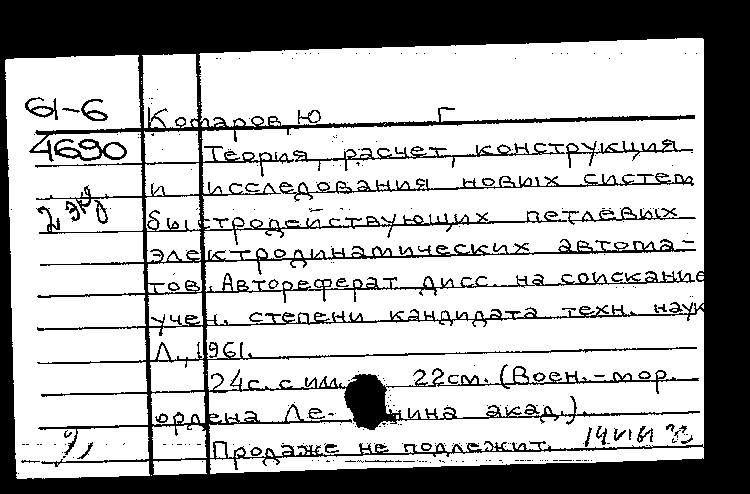 61-6
4690
2 экз.
Комаров, Ю Г
Теория, расчет, конструкция
и исследования новых систем
быстродействующих петлевых
электродинамических автома-
тов. Автореферат дисс. на соискание
учен. степени кандидата техн. наук
Л., 1961.
24с. с илл. 22см. (Воен.-мор.
ордена Ле- нина акад.).
Продаже не подлежит.